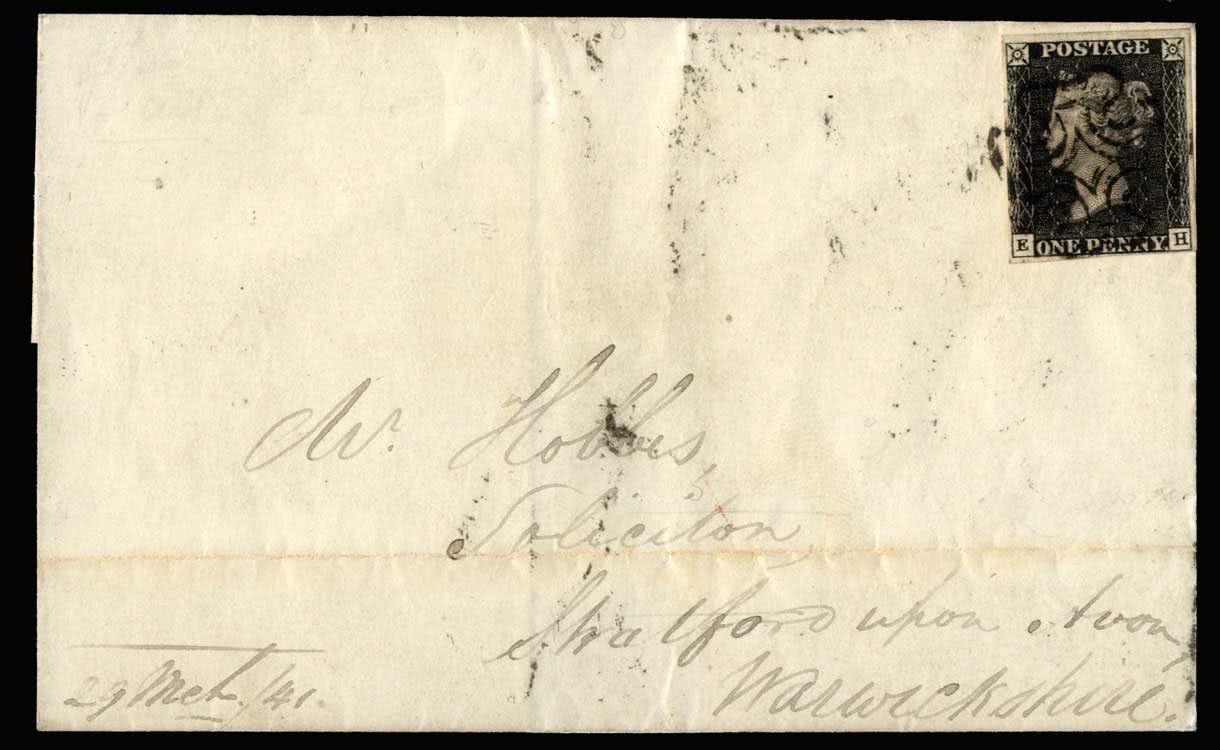 POSTAGE
E ONE PENNY H
Mr. Hobbes,
Solicitor,
Stratford upon Avon,
Warwickshire.
29 Mch /41.